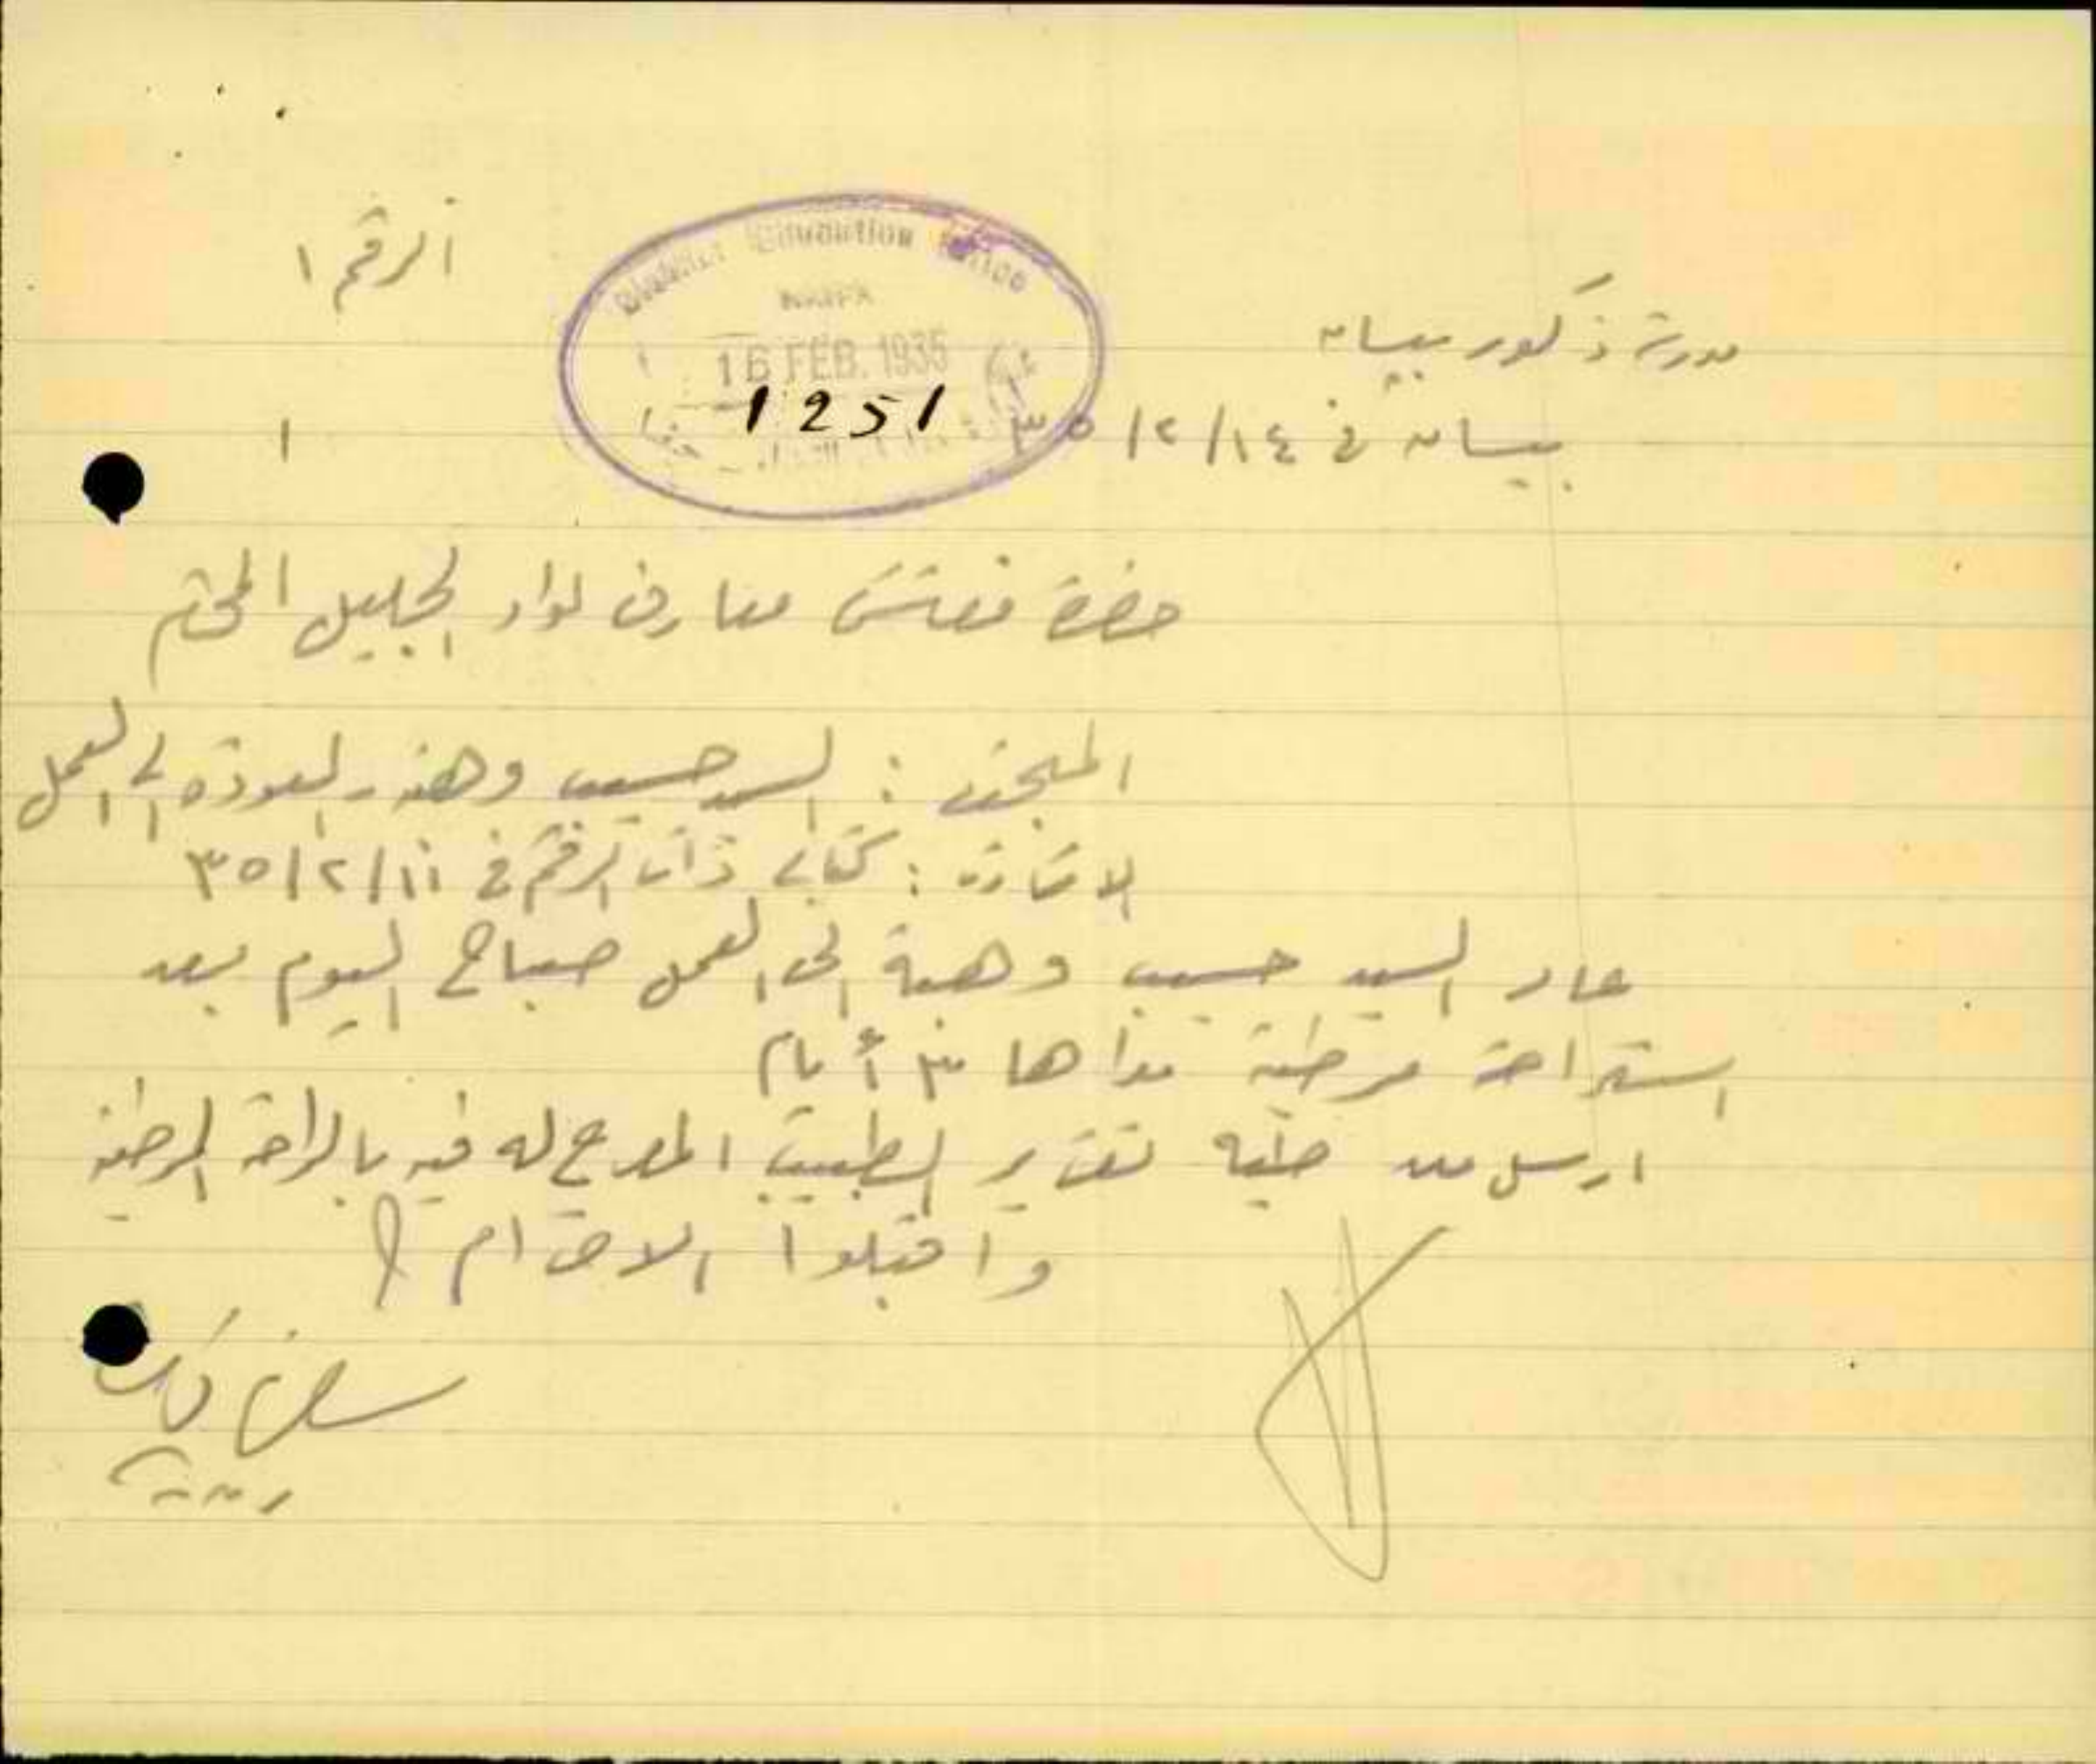 الرقم ١
District Education Office
HAIFA
16 FEB. 1935
1251
مدرسة ذكور بيسان
بيسان في ١٤/٢/٣٥
١
حضرة مفتش معارف لواء الجليل المحترم
المبحث : السيد حسيب وهبه - العودة الى العمل
الاشارة : كتابي ذات الرقم في ١١/٢/٣٥
عاد السيد حسيب وهبة الى العمل صباح اليوم بعد
استراحة مرضية مداها ٣ أيام
ارسل من طيه تقرير الطبيب المصرح له فيه بالراحة المرضية
واقبلوا الاحترام